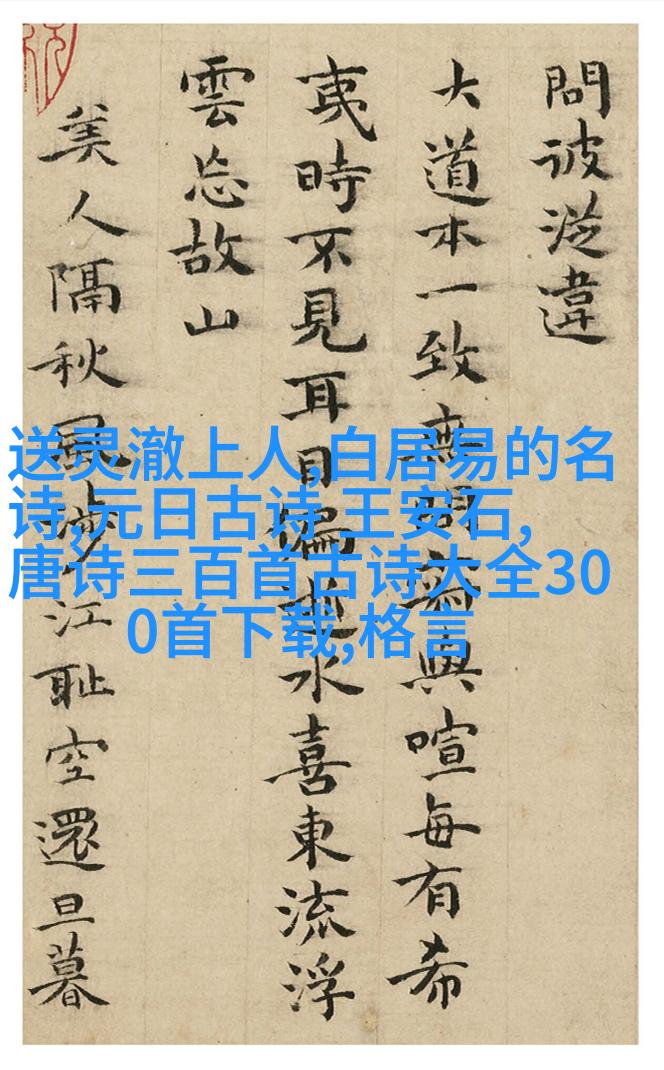 問彼從違
大道本一致與喧每有希
夷時不見耳目偏逝水喜東流浮
雲忘故山
美人隔秋風涉江恥空還旦暮
送灵澈上人,白居易的名
诗,元日古诗 王安石,
唐诗三百首古诗大全30
0首下载,格言